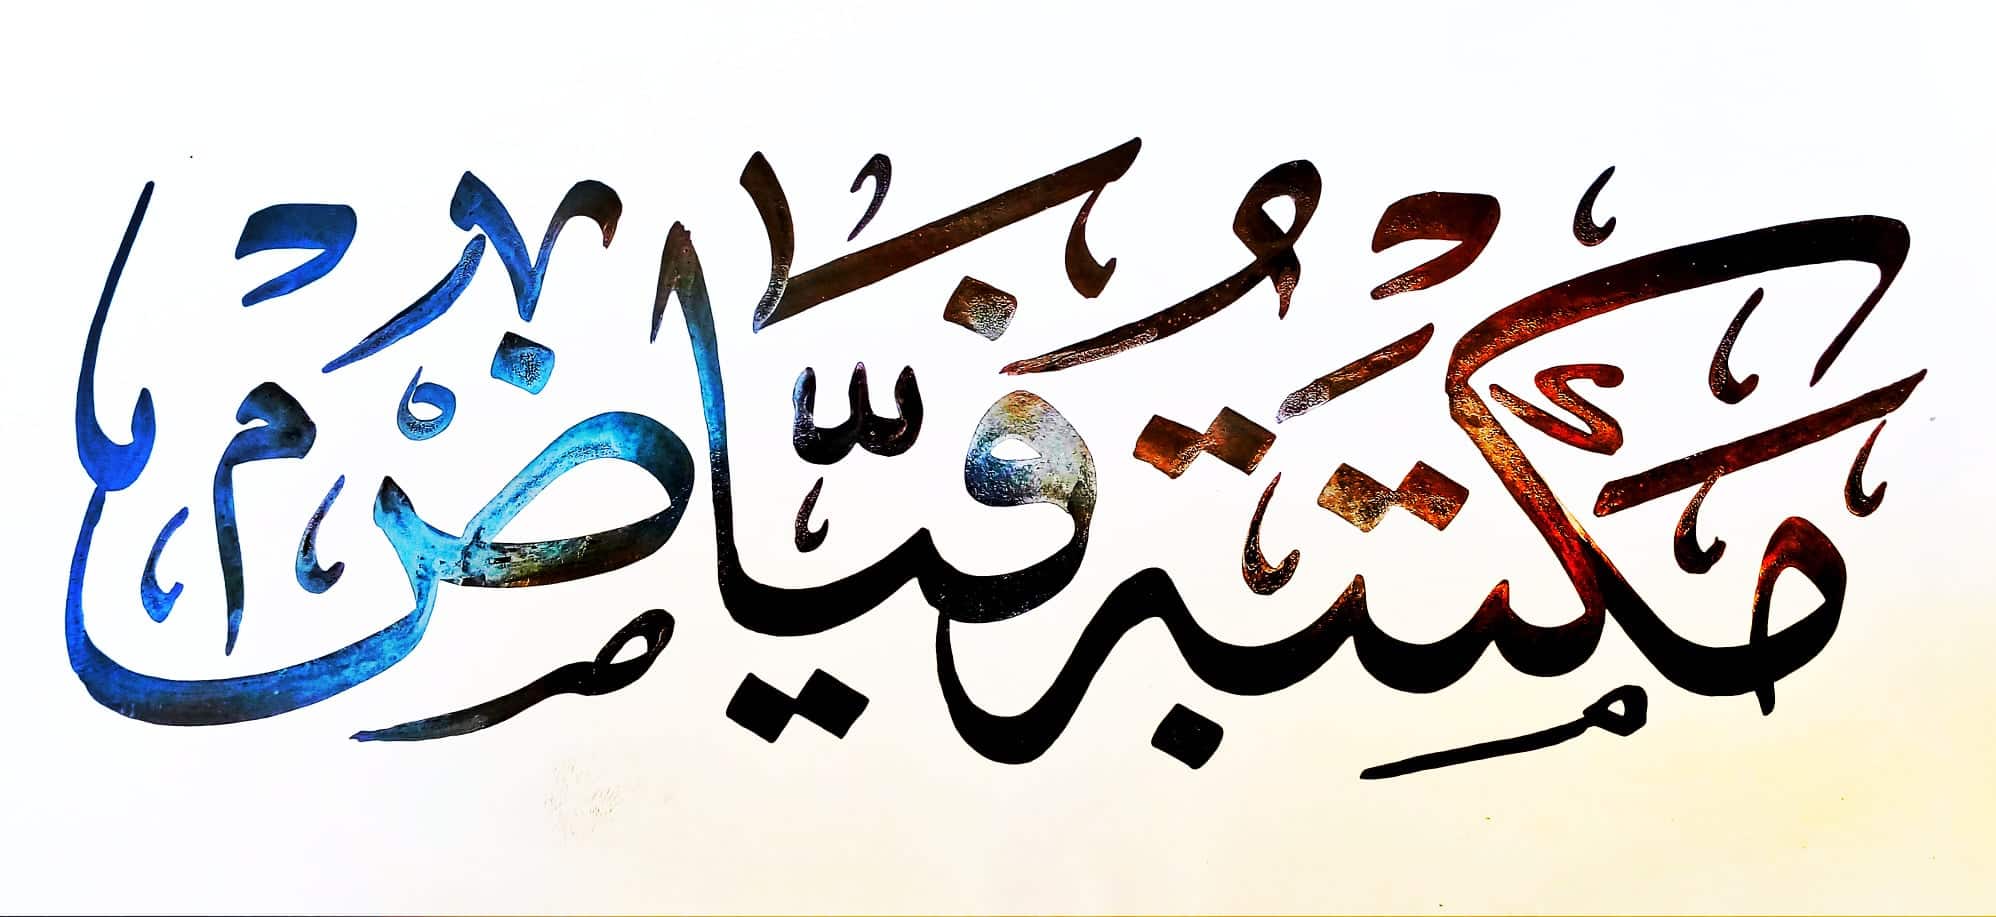 مَكْتَبَةُ فَيَّاضْ